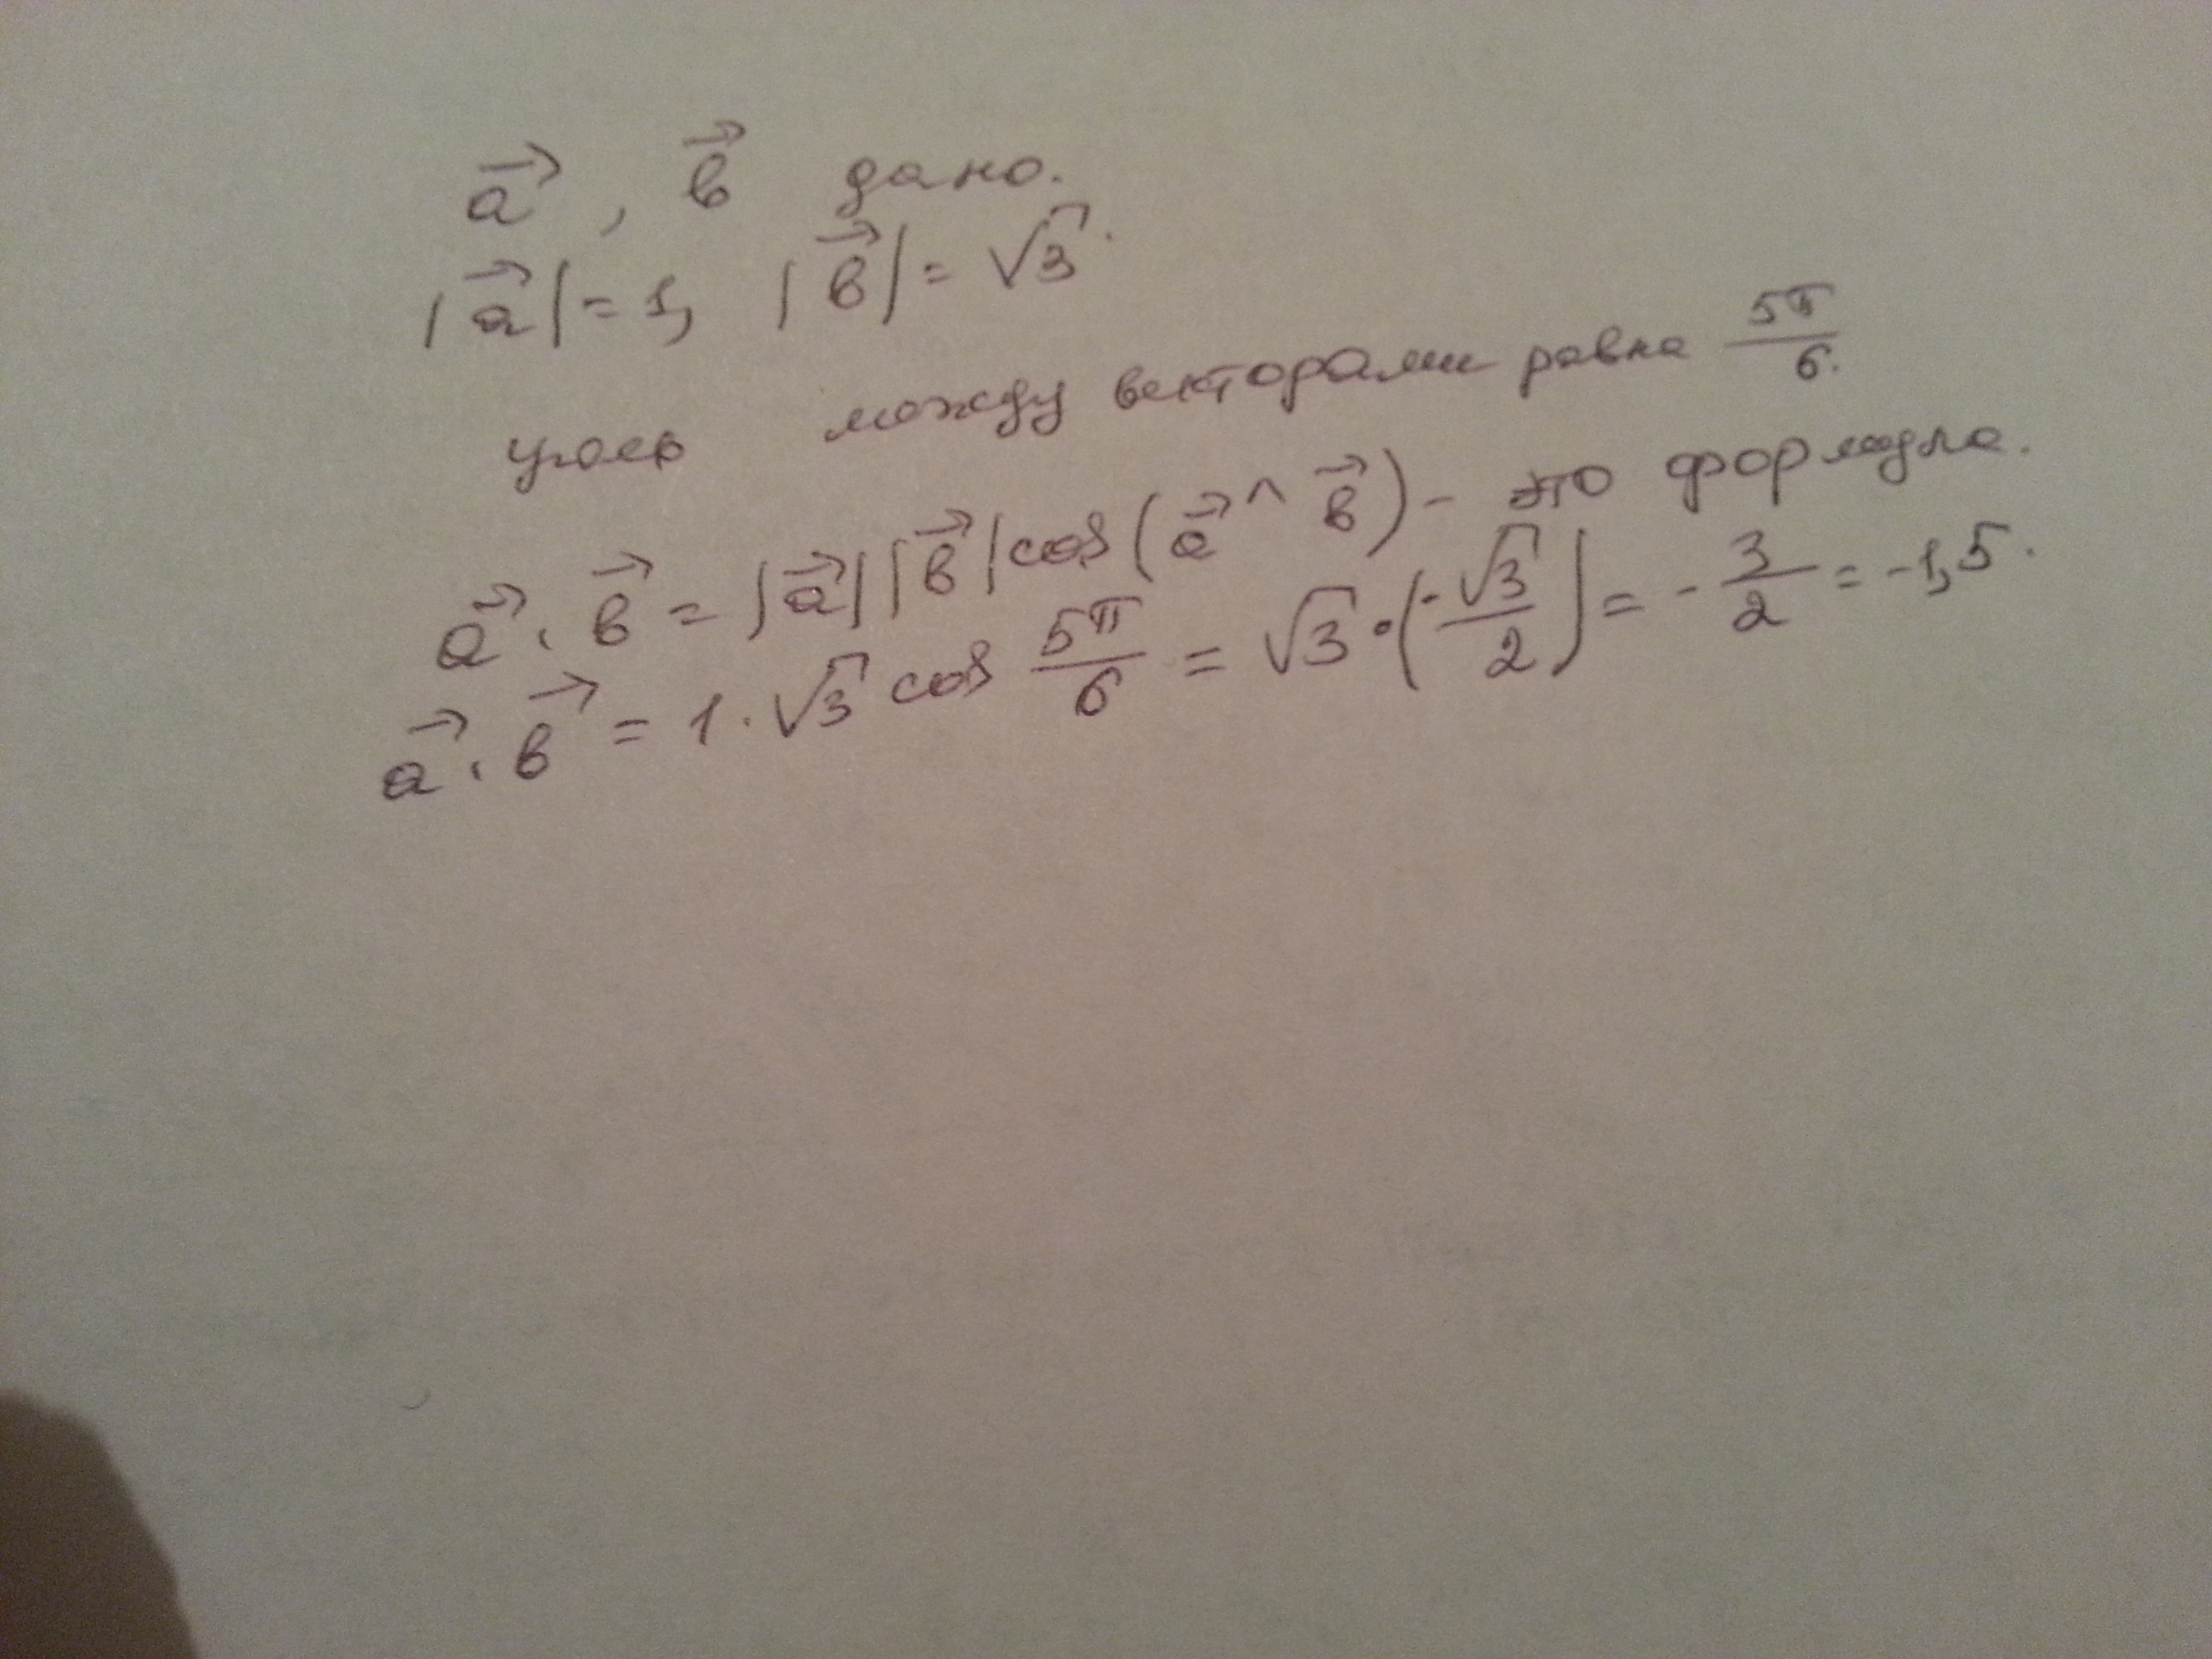 a⃗, b⃗ дано.
|a⃗| = 1, |b⃗| = √3.
уголь между векторами равна 5π/6.
a⃗ · b⃗ = |a⃗| |b⃗| cos(a⃗ ^ b⃗) - это формула.
a⃗ · b⃗ = 1 · √3 cos 5π/6 = √3 · (-√3/2) = -3/2 = -1,5.